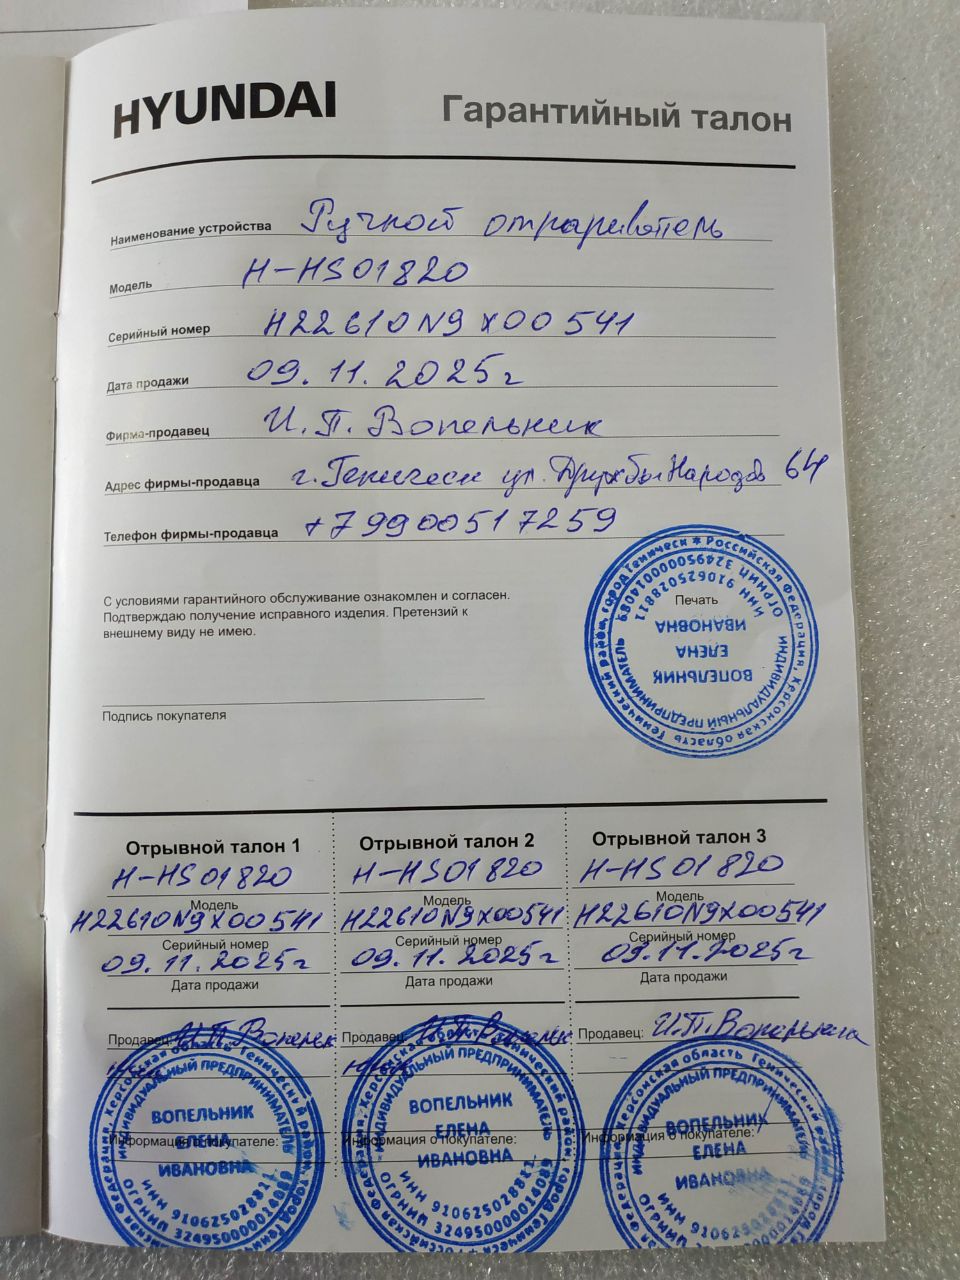 HYUNDAI
Гарантийный талон
Наименование устройства Ручной отпариватель
Модель H-HS01820
Серийный номер H22610N9X00541
Дата продажи 09.11.2025г
Фирма-продавец И.П. Вопельник
Адрес фирмы-продавца г.Геническ ул. Дружбы Народов 64
Телефон фирмы-продавца +79900517259
С условиями гарантийного обслуживание ознакомлен и согласен.
Подтверждаю получение исправного изделия. Претензий к
внешнему виду не имею.
Печать
Российская Федерация, Херсонская область Генический район, город Геническ
ИНДИВИДУАЛЬНЫЙ ПРЕДПРИНИМАТЕЛЬ
ОГРНИП 324950000014089
ИНН 910625028811
ВОПЕЛЬНИК
ЕЛЕНА
ИВАНОВНА
Подпись покупателя
Отрывной талон 1
H-HS01820
Модель
H22610N9X00541
Серийный номер
09.11.2025г
Дата продажи
Продавец: И.П.
Информация о покупателе:
ИНДИВИДУАЛЬНЫЙ ПРЕДПРИНИМАТЕЛЬ
ВОПЕЛЬНИК
ЕЛЕНА
ИВАНОВНА
Отрывной талон 2
H-HS01820
Модель
H22610N9X00541
Серийный номер
09.11.2025г
Дата продажи
Продавец: И.П.
Информация о покупателе:
ИНДИВИДУАЛЬНЫЙ ПРЕДПРИНИМАТЕЛЬ
ВОПЕЛЬНИК
ЕЛЕНА
ИВАНОВНА
ИНН 910625028811
ОГРНИП 324950000014089
Отрывной талон 3
H-HS01820
Модель
H22610N9X00541
Серийный номер
09.11.2025г
Дата продажи
Продавец: И.П.
Информация о покупателе:
Херсонская область Генический район
ИНДИВИДУАЛЬНЫЙ ПРЕДПРИНИМАТЕЛЬ
ВОПЕЛЬНИК
ЕЛЕНА
ИВАНОВНА